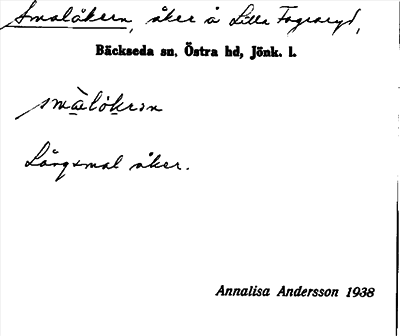 Smalåkern, åker å Lilla Fagraryd,
Bäckseda sn, Östra hd, Jönk. l.
smàlȯ́kɐrn
Långsmal åker.
Annalisa Andersson 1938